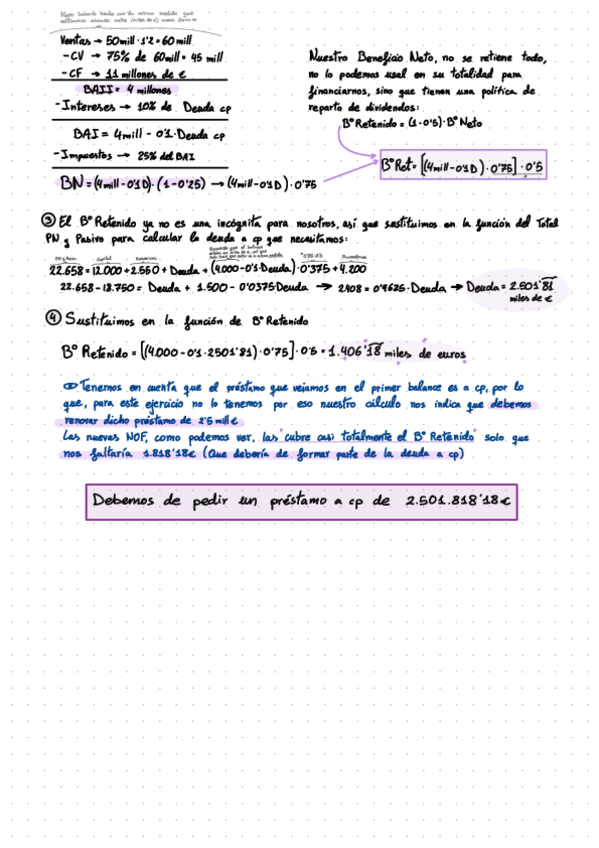 Ventas → 50mill · 1'2 = 60 mill
- CV → 75% de 60mill = 45 mill
- CF → 11 millones de €
BAII = 4 millones
- Intereses → 10% de Deuda cp
BAI = 4mill - 0'1·Deuda cp
- Impuestos → 25% del BAI
BN = (4mill-0'1D)·(1-0'25) → (4mill-0'1D)·0'75
Nuestro Beneficio Neto, no se retiene todo,
no lo podemos usal en su totalidad para
financiarnos, sino que tienen una política de
reparto de dividendos:
Bº Retenido = (1-0'5)·Bº Neto
BºRet = [(4mill-0'1D)·0'75]·0'5
③ El Bº Retenido ya no es una incógnita para nosotros, así que sustituimos en la función del Total
PN y Pasivo para calcular la deuda a cp que necesitamos:
22.658 = 12.000 + 2.550 + Deuda + (4.000-0'1·Deuda)·0'375 + 4.200
22.658 - 18.750 = Deuda + 1.500 - 0'0375·Deuda → 2408 = 0'9625·Deuda → Deuda = 2.501'81
miles de €
④ Sustituimos en la función de Bº Retenido
Bº Retenido = [(4.000-0'1·2501'81)·0'75]·0'5 = 1.406'18 miles de euros
Tenemos en cuenta que el préstamo que veíamos en el primer balance es a cp, por lo
que, para este ejercicio no lo tenemos por eso nuestro cálculo nos indica que debemos
renovar dicho préstamo de 2'5 mill €
Las nuevas NOF, como podemos ver, las "cubre casi totalmente el Bº Retenido" solo que
nos faltaría 1.818'18€ (Que debería de formar parte de la deuda a cp)
Debemos de pedir un préstamo a cp de 2.501.818'18€